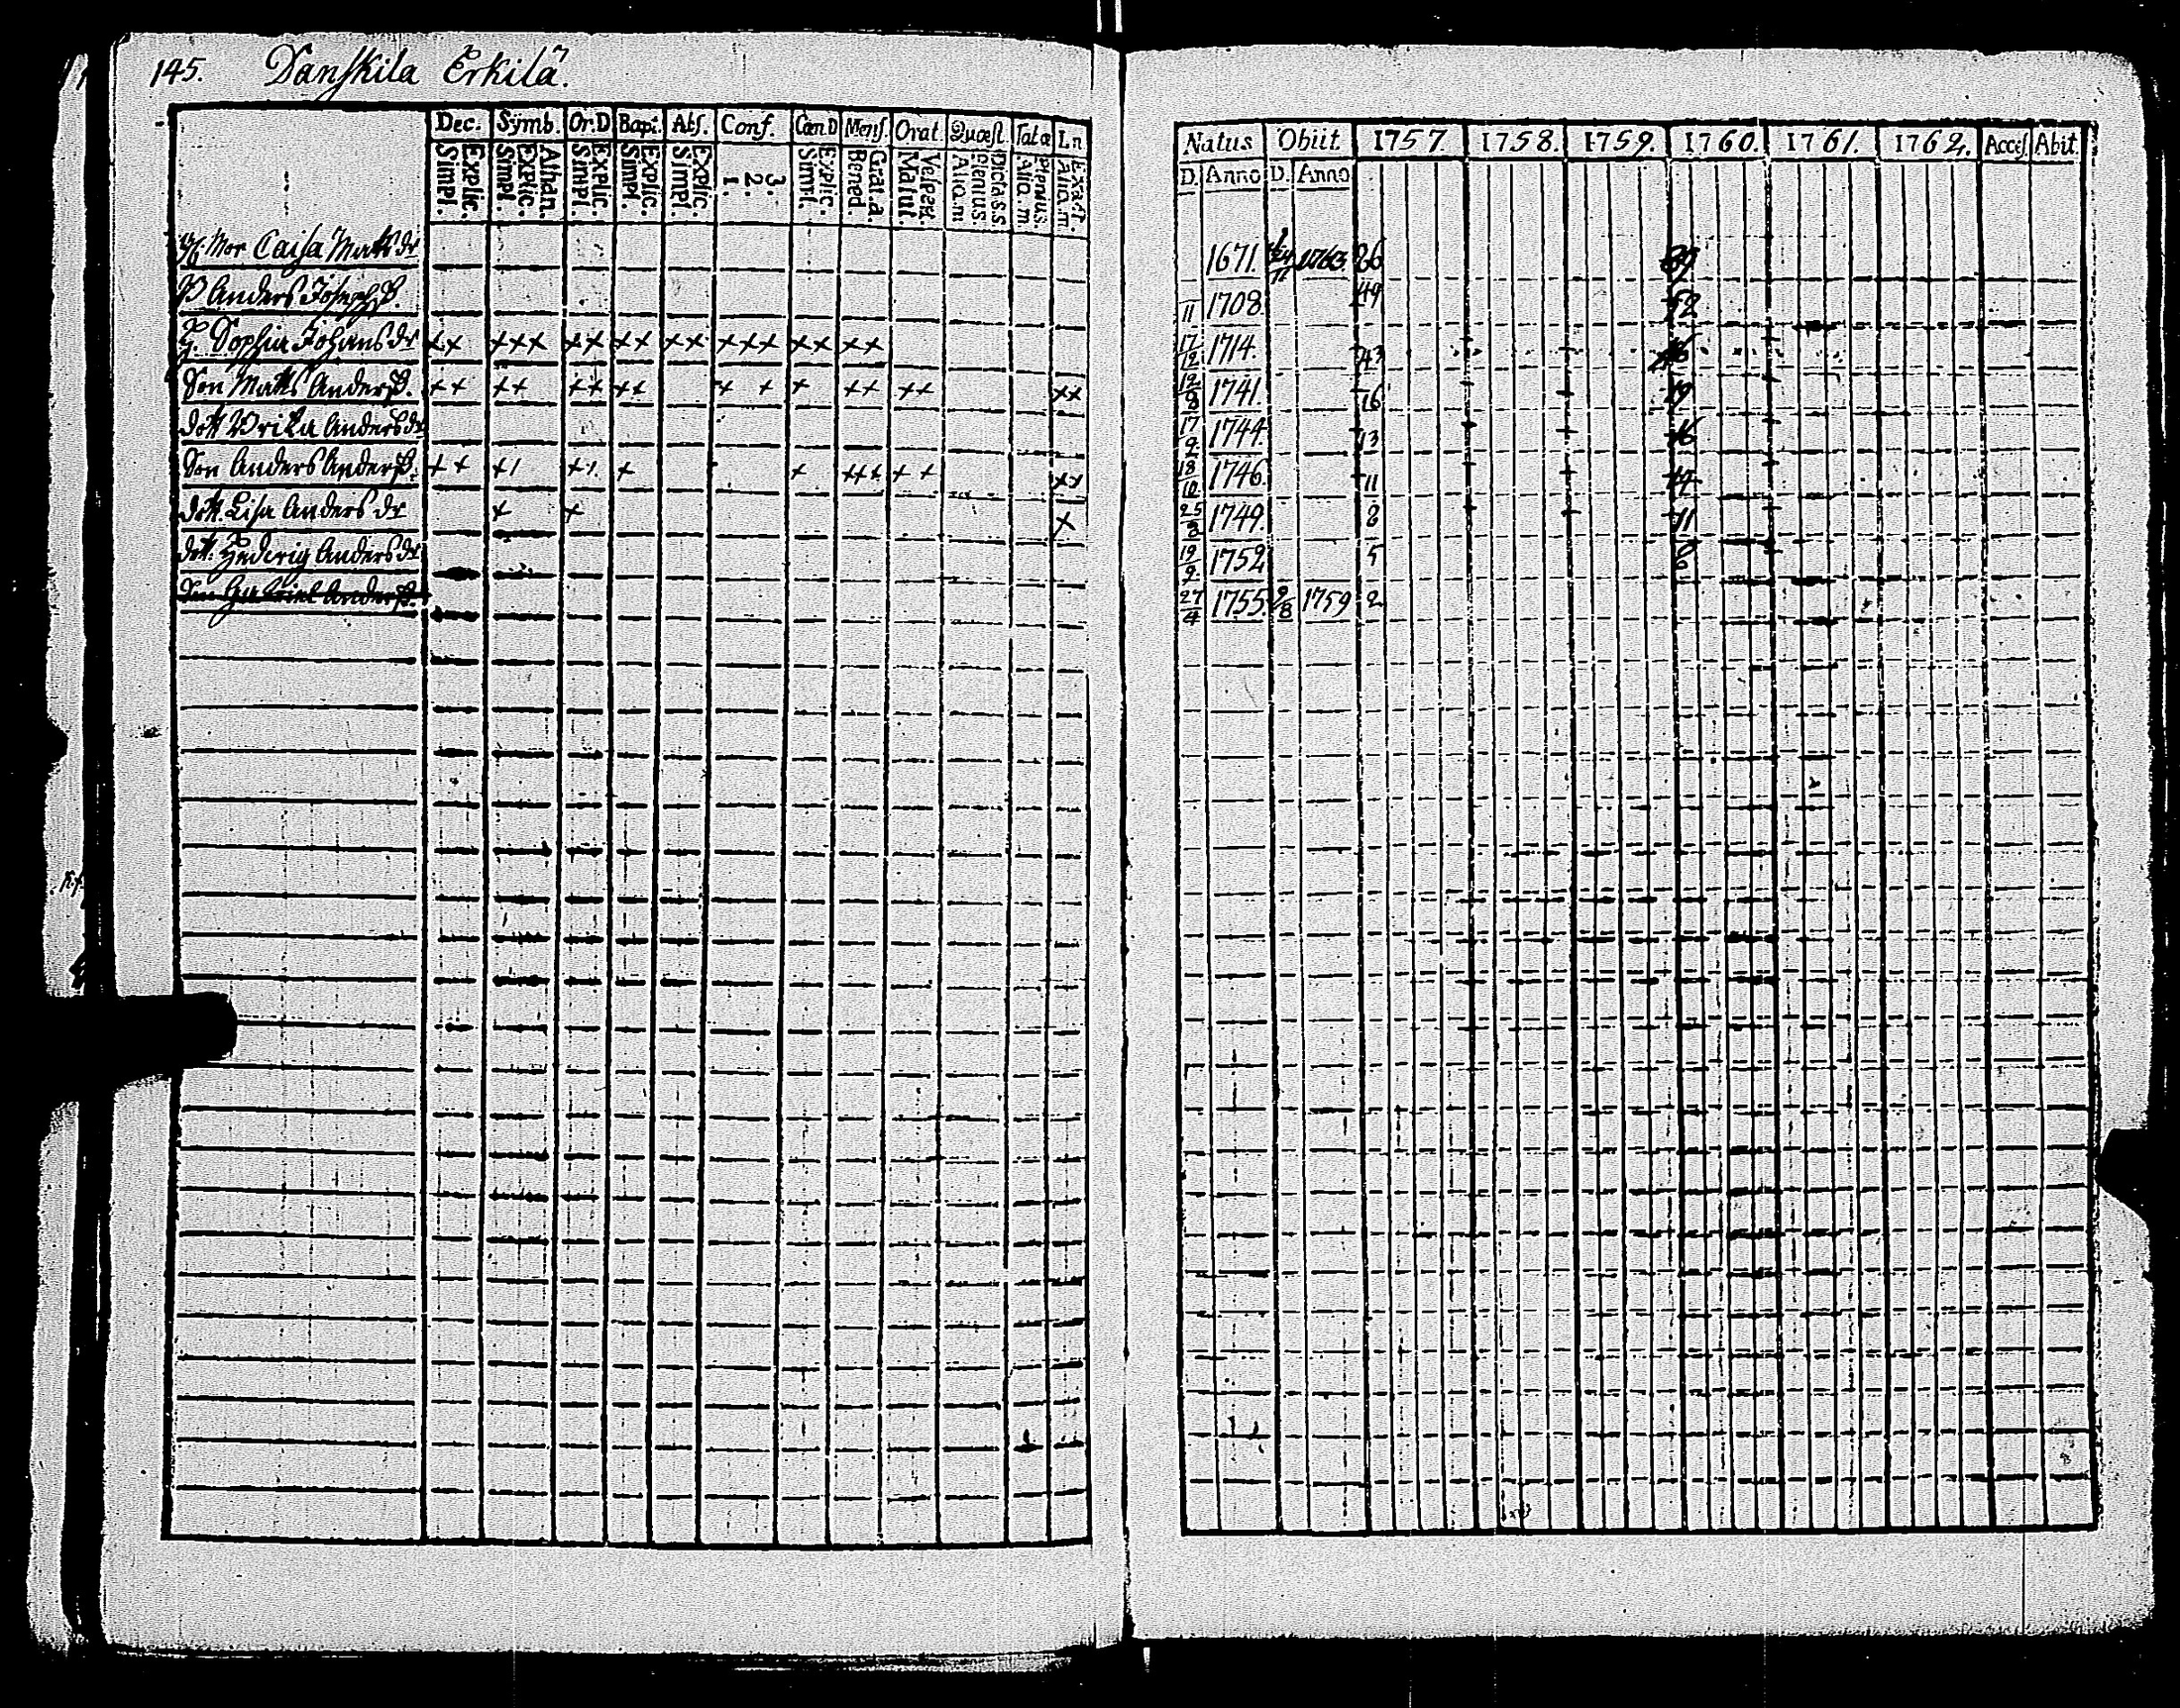 145. Danskila Erkilä.
Dec. Symb. Or.D Bapt. Abs. Conf. CœnD Mens. Orat. Quæst. Tatæ Ln
Explic. Simpl. Athan. Explic. Simpl. Explic. Simpl. Explic. Simpl. Explic. Simpl. 3. 2. 1. Explic. Simpl. Grat.a. Bened. Vesper. Matut. Dicta.s.s. plenius. Aliq.m Plenius. Aliq.m Exact. Aliq.m.
Natus Obiit. 1757. 1758. 1759. 1760. 1761. 1762. Acces. Abit.
D. Anno D. Anno
Mor Caisa Matts dr 1671. 86 89
B Anders Josephß. 11 1708. 49 52
H. Sophia Johans dr ×× ××× ×× ×× ×× ××× ×× ×× 17/12 1714. 43 46
Son Matts Anderß. ×× ×× ×× ×× × × × ×× ×× ×× 12/8 1741. 16 19
dott Ulrika Anders dr 17/9 1744. 13 16
Son Anders Anderß. ×× ×1 ×1. × × ××× ×× ×× 18/10 1746. 11 14
dott. Lisa Anders dr × × × 25/3 1749. 8 11
dott. Hedevig Anders dr 19/9 1752 5 8
Son Gabriel Anderß. 27/4 1755. 9/8 1759 2